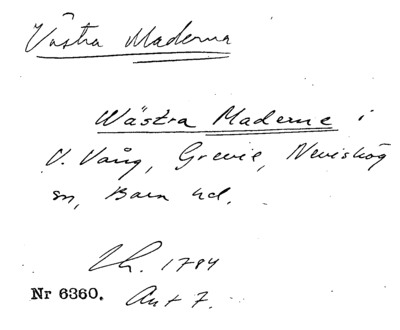 Västra Maderna
Wästra Maderne i
V. Vång, Grevie, Nevishög
sn, Bara hd.
Lh. 1784
Nr 6360. Akt 7.